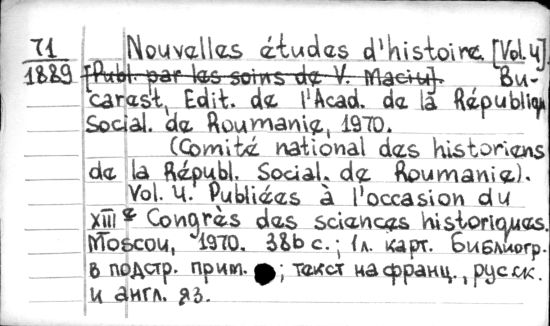 71
1889
Nouvelles études d'histoire. [Vol. 4].
[Publ. par les soins de V. Maciu]. Bu-
carest, Edit. de l'Acad. de la Républiqu
Social. de Roumanie, 1970.
(Comité national des historiens
de la Républ. Social. de Roumanie).
Vol. 4. Publiées à l'occasion du
XIIIe Congrès des sciences historiques.
Moscou, 1970. 386 с.; 1л. карт. Библиогр.
в подстр. прим. ; текст на франц., русск.
и англ. яз.